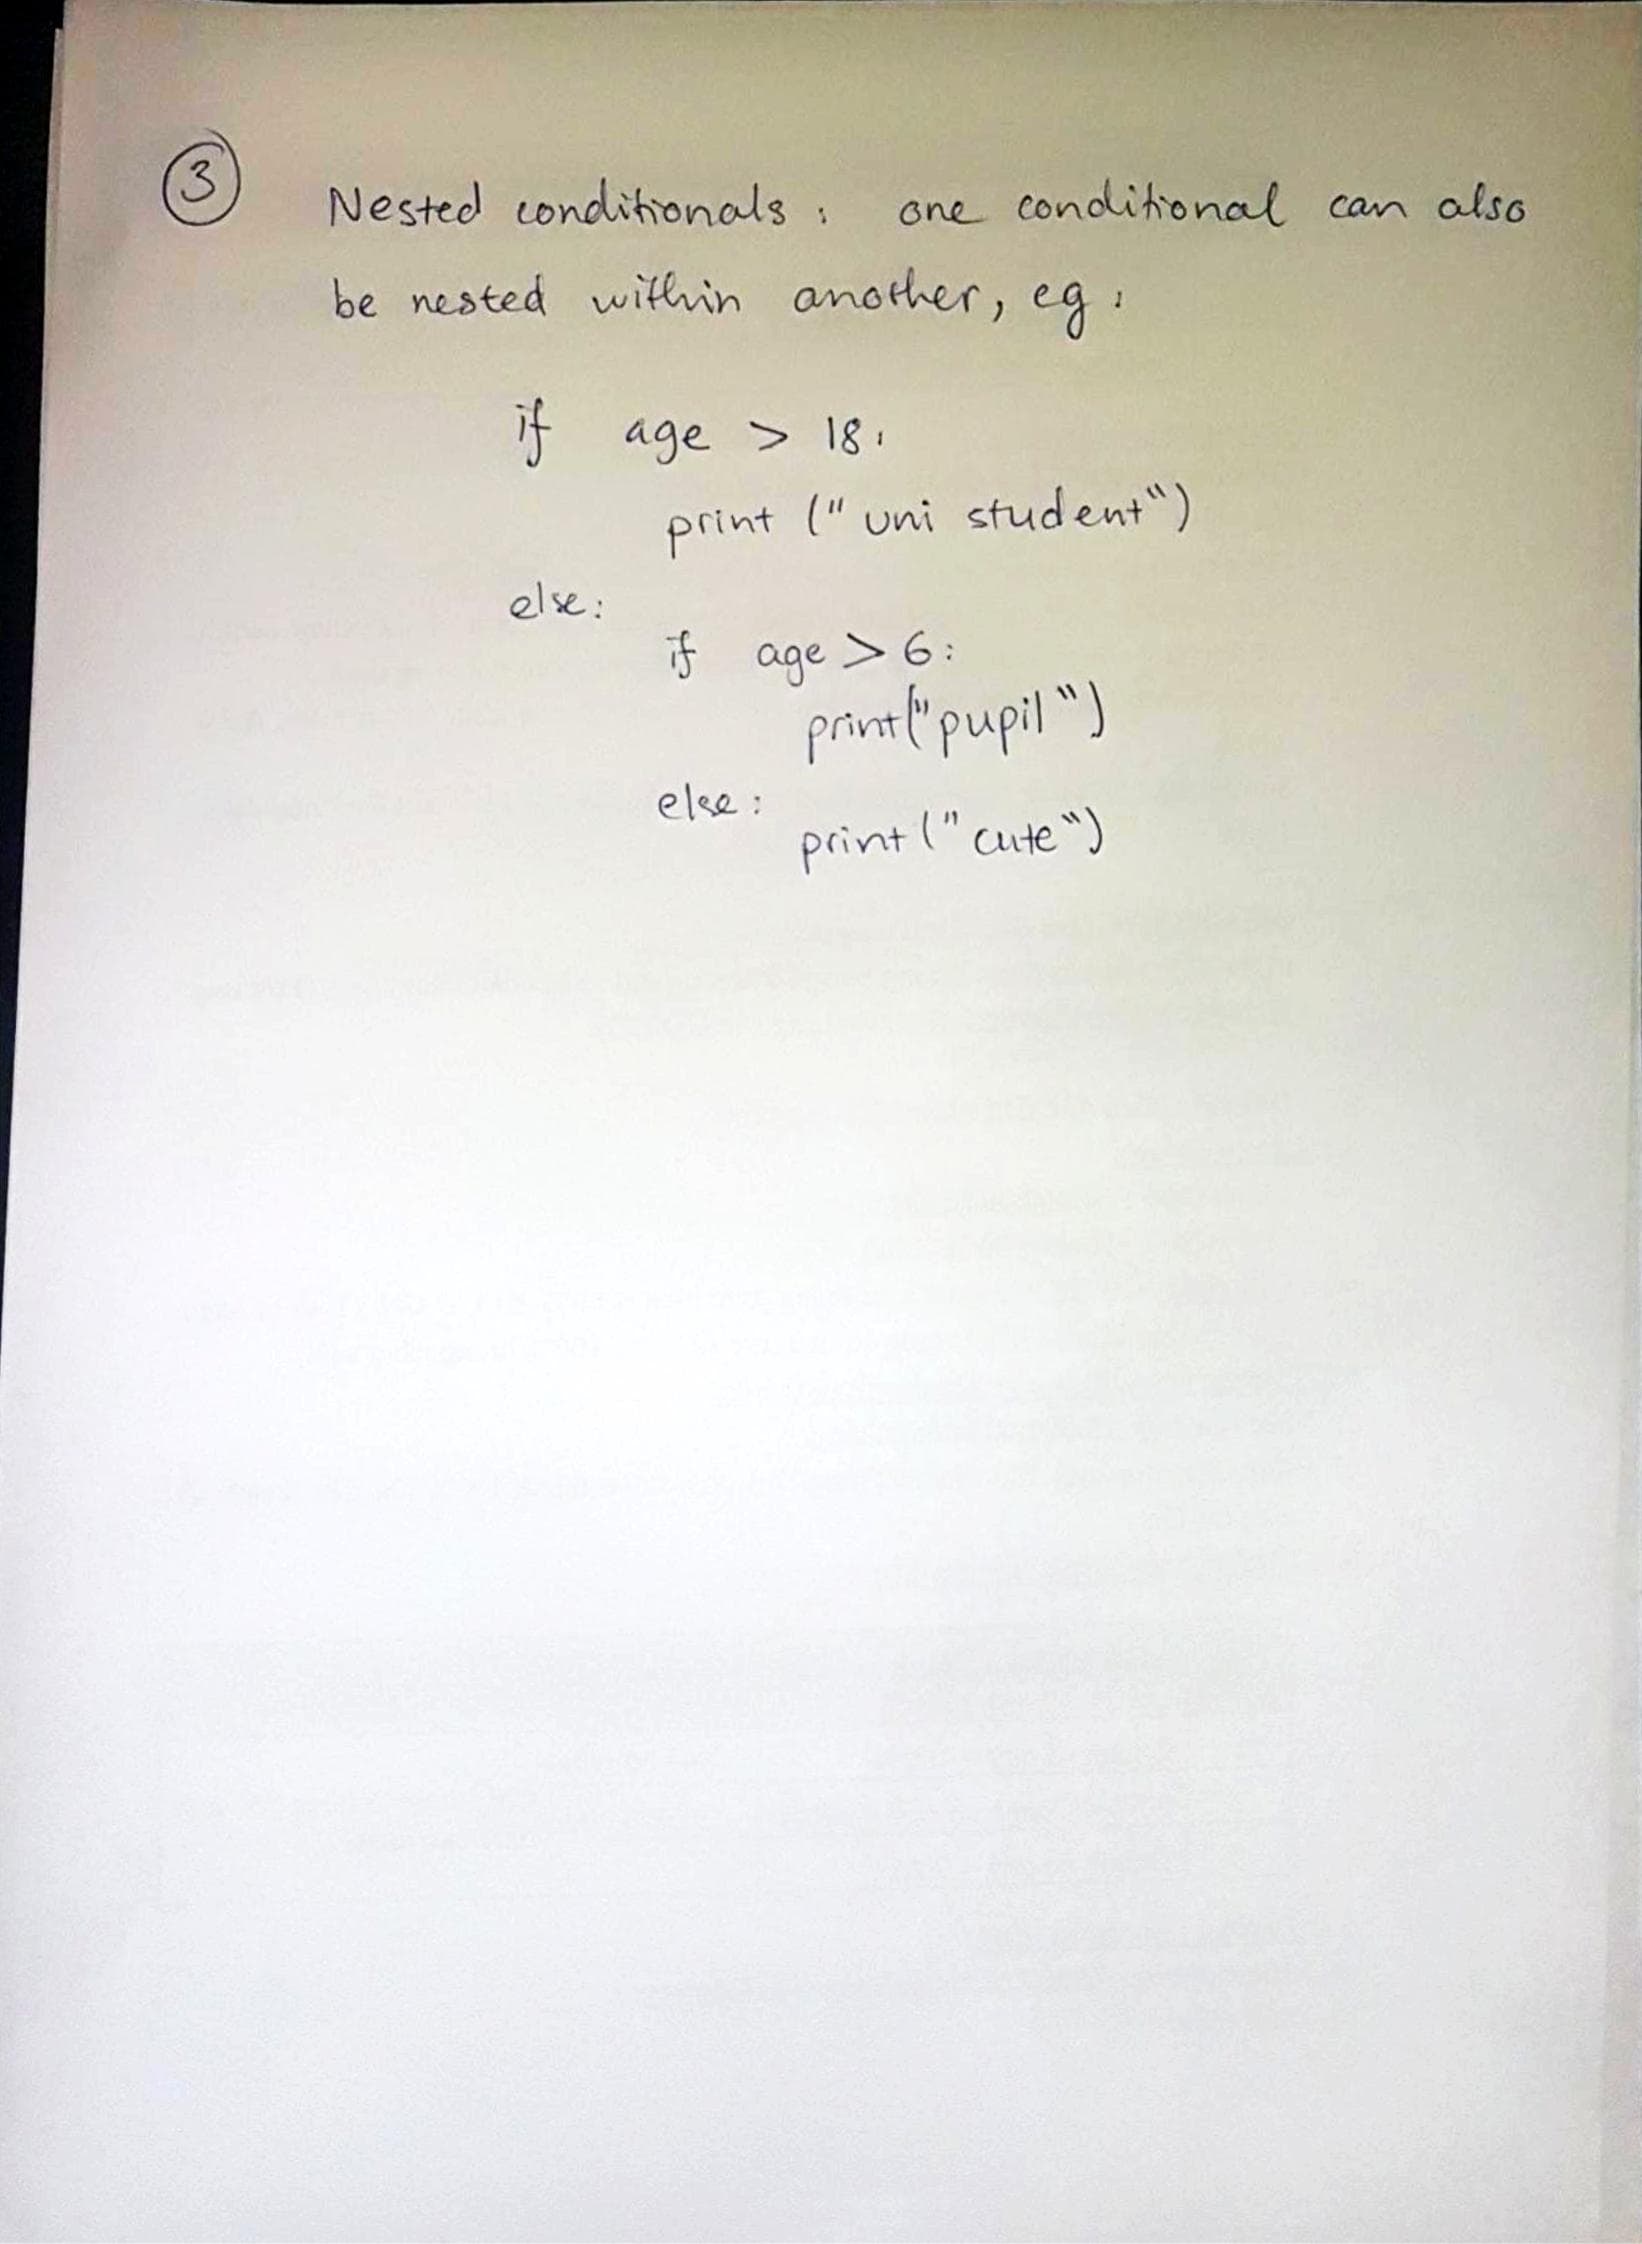 3 Nested conditionals: one conditional can also
be nested within another, eg:
if age > 18:
print ("uni student")
else:
if age > 6:
print("pupil")
else:
print ("cute")